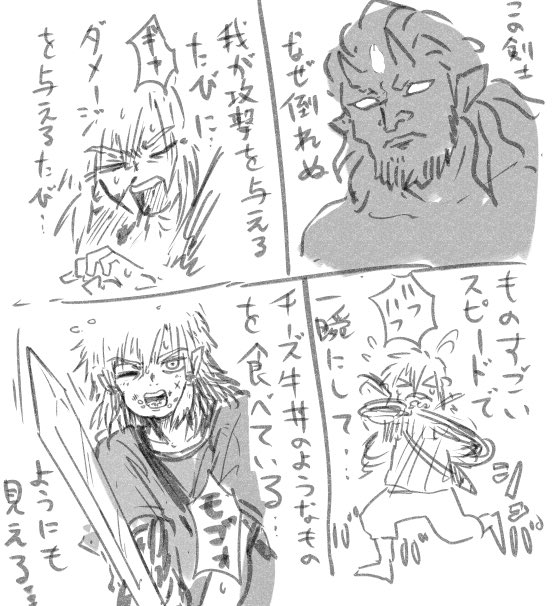 この剣士
なぜ倒れぬ
我が攻撃を与える
たびに…
ダメージ
を与えるたび…
ギャ
ものすごい
スピードで
一瞬にして…
バッ
チーズ牛丼のようなもの
を食べている
ようにも
見える…
モゴォ